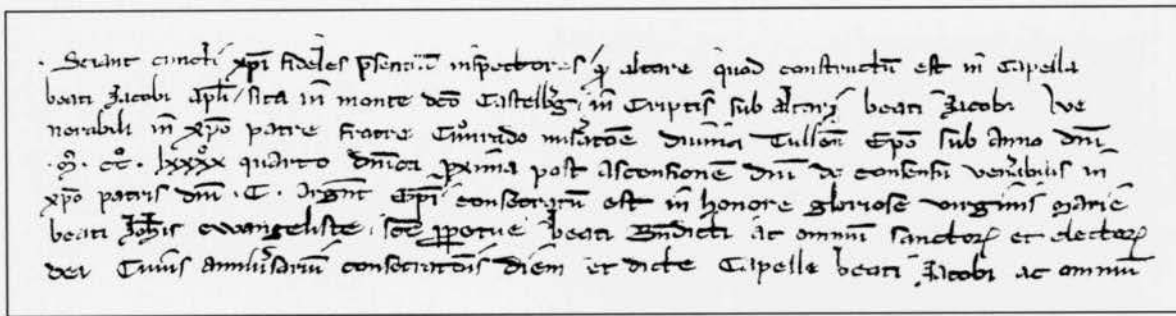 Sciant cuncti xpī fideles p̄sentiū inspectores / q̄ altare quod constructū est in Capella
beati Jacobi apl̄i / sita in monte dc̄o Castelb̄g / in Criptis sub altari beati Jacobi
norabili in xp̄o patre fratre Cūnrado mis̄atōe diuina Tullen̄ Ep̄o sub anno dn̄i
.M̊. cc̊. lxxx̊x quarto dn̄ica p̄xima post Ascensionē dn̄i de consensu ven̄abilis in
xp̄o patris dn̄i .C. Arḡnt Ep̄i consecratū est in honore gloriose virginis marie
beati Joh̄is ewangeliste . sc̄e p̄petue beati Bn̄dicti ac omniū sanctoꝝ et electoꝝ
dei Cuius anniūsariū consecratōis diem et dicte Capelle beati Jacobi ac omniū